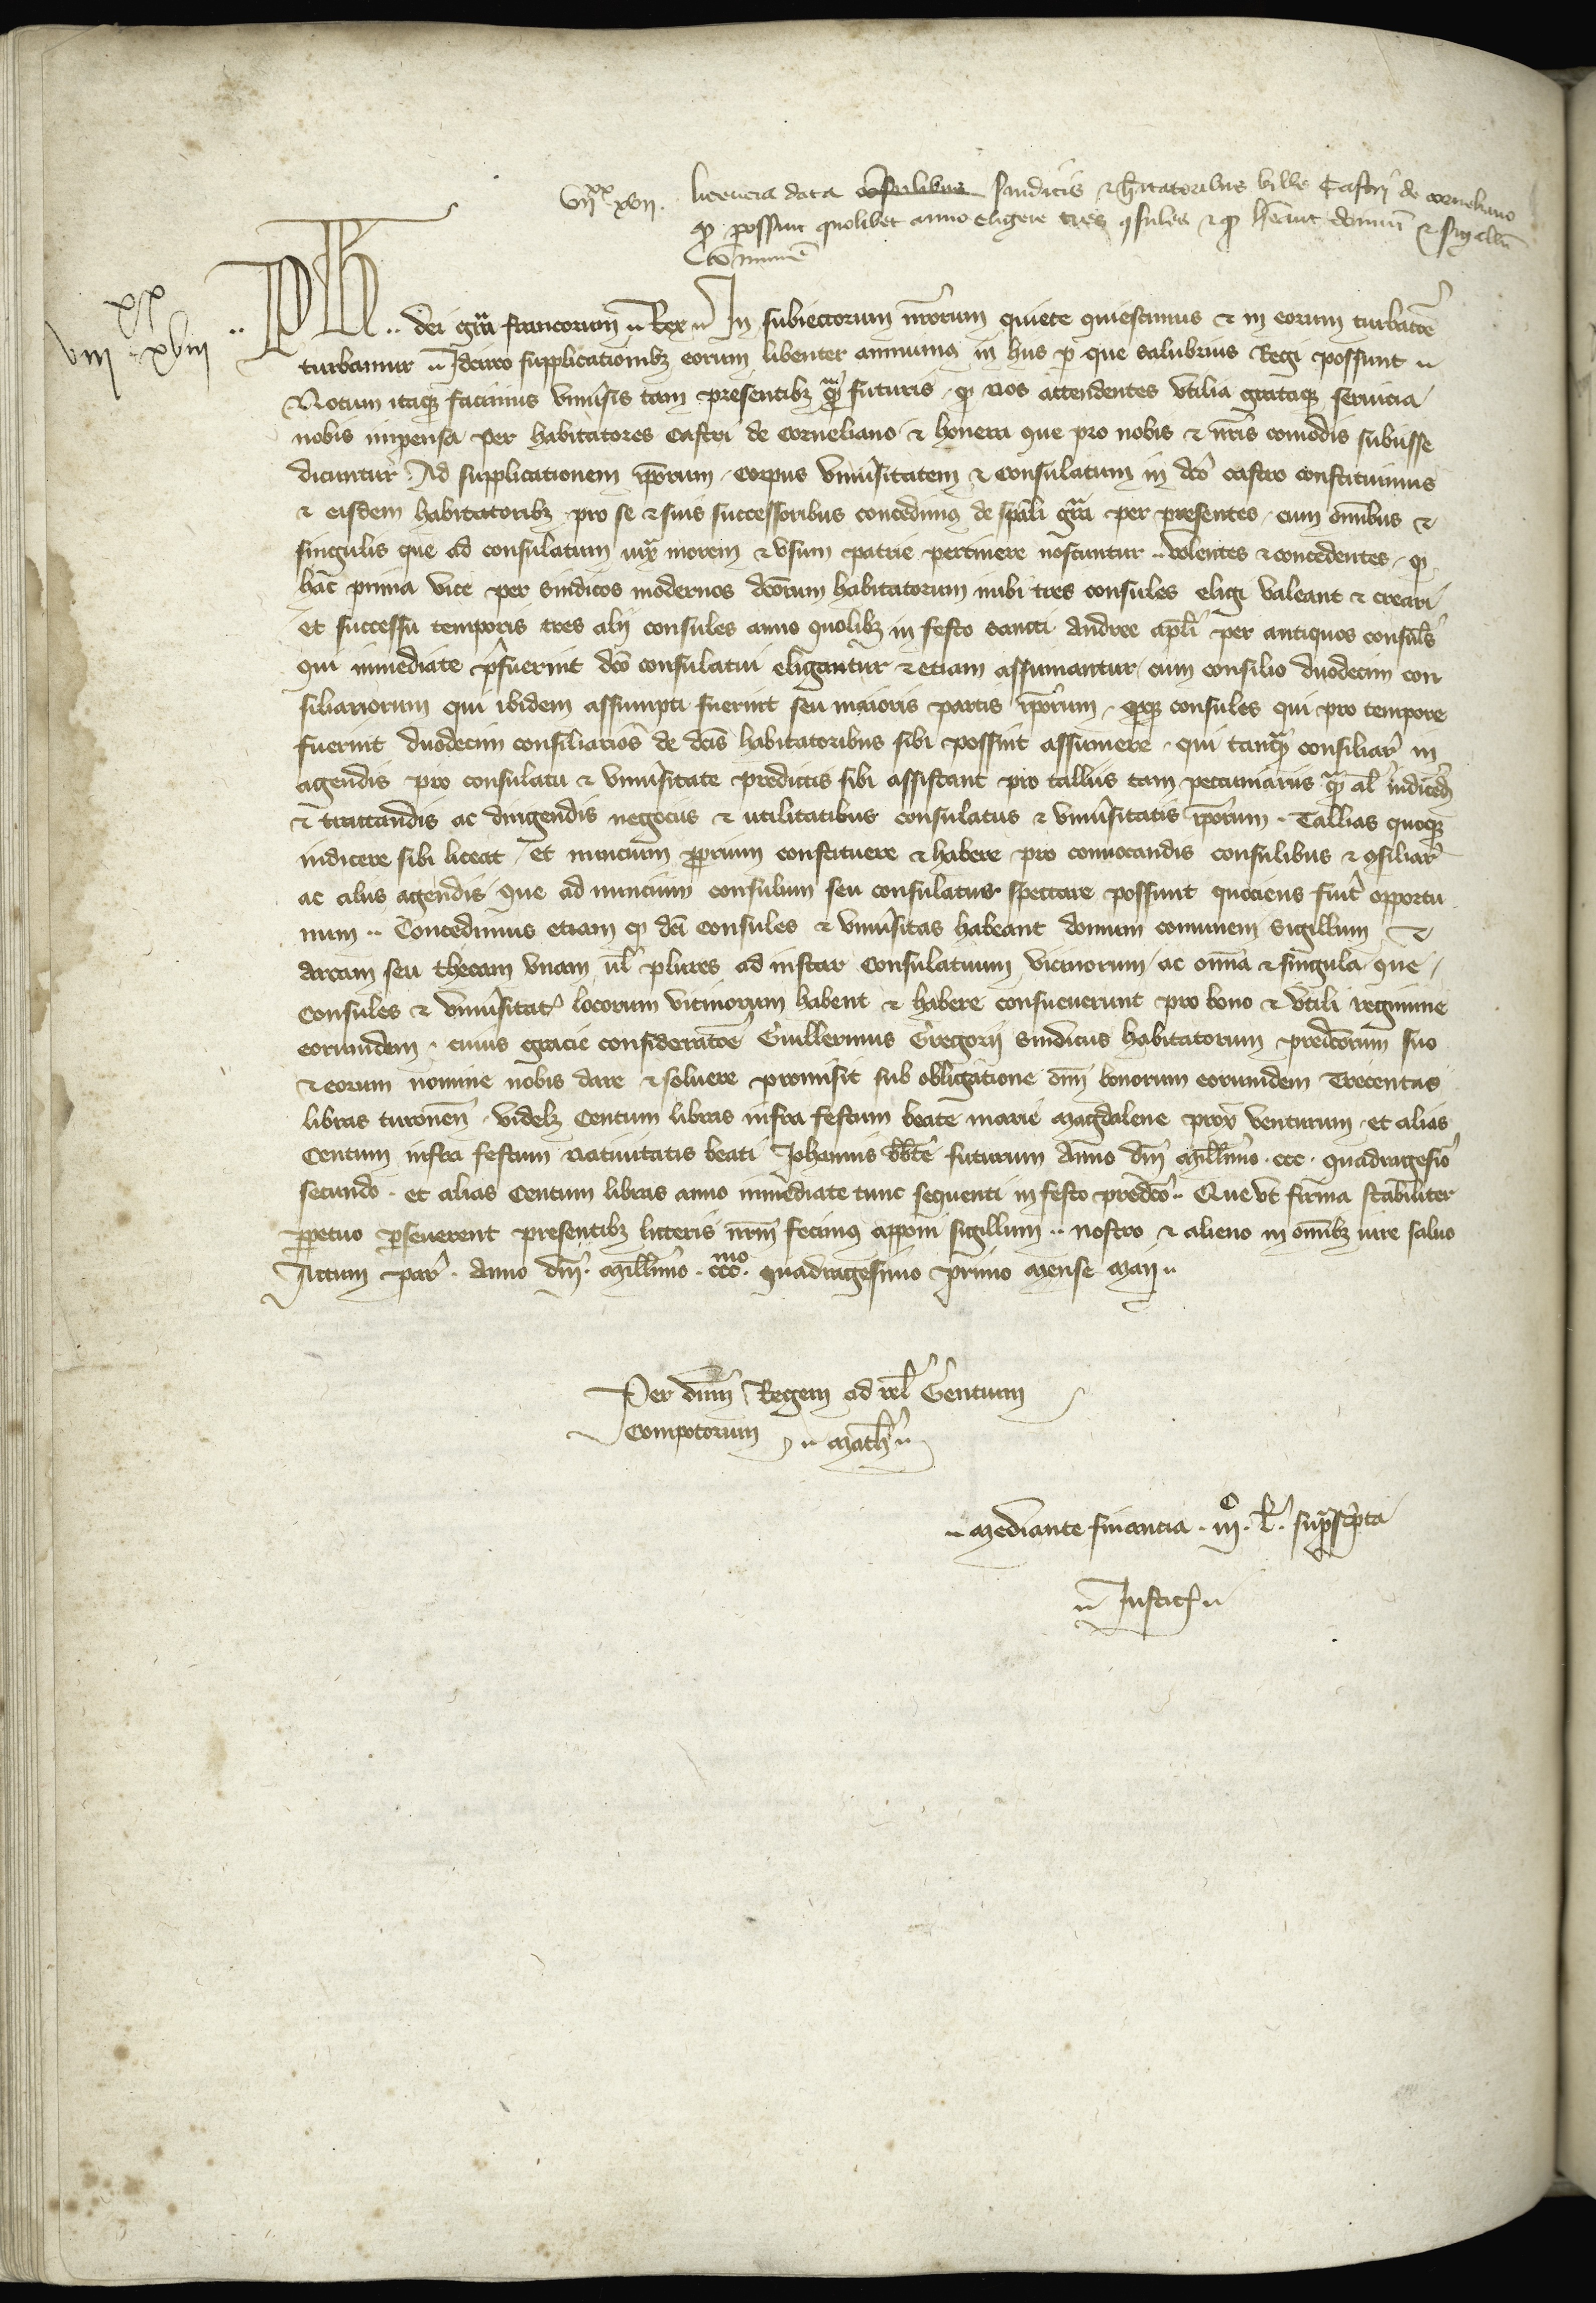 vııxx xvıı. licencia data consulibus sindicis ⁊ hītatoribus ville Castri de corneliano
ꝙ possint quolibet anno eligere tres ꝯsules ⁊ ꝙ hēant domū ⁊ sigillū
cōmunē
vııı xx xvııı
.. Ph̄ .. dei grā francorum Rex .. In subiectorum nrōrum quiete quiescimus ⁊ in eorum turbatōe
turbamur .. Idcirco supplicationibꝫ eorum libenter annuimꝰ in hiis ꝑ que salubrius Regi possunt ..
Notum itaqꝫ facimus vniūsis tam presentibꝫ qͣꝫ futuris . ꝙ nos attendentes vtilia grataqꝫ seruicia
nobis impensa per habitatores Castri de Corneliano ⁊ honera que pro nobis ⁊ nrīs comodis subiisse
dicuntur . Ad supplicationem ipōrum . Corpus vniūsitatem ⁊ Consulatum in dcō castro constituimus
⁊ eisdem habitatoribꝫ pro se ⁊ suis successoribus concedimꝰ de spāli grā per presentes . cum omībus ⁊
singulis que ad consulatum iuxͣ morem ⁊ vsum patrie pertinere noscuntur .. volentes ⁊ concedentes . ꝙ
hāc prima vice per sindicos modernos dcōrum habitatorum inibi tres consules eligi valeant ⁊ creari
et successu temporis tres alij consules anno quolibꝫ in festo sancti Andree apli per antiquos consulēs
qui inmediate p̄fuerint dcō consulatui eligantur ⁊ etiam assumantur cum consilio duodecim con
siliariorum qui ibidem assumpti fuerint seu maioris partis ipōrum . ꝙqꝫ consules qui pro tempore
fuerint duodecim consiliarios de dcīs habitatoribus sibi possint assumere . qui tanqͣꝫ consiliar̄ in
agendis pro consulatu ⁊ vniūsitate predictis sibi assistant pro talliis tam pecuniariis qͣꝫ al̄ indicēd
⁊ tractandis ac dirigendis negociis ⁊ utilitatibus consulatus ⁊ vniūsitatis ipōrum . Tallias quoqꝫ
indicere sibi liceat . et nuncium ꝓprium constituere ⁊ habere pro conuocandis consulibus ⁊ ꝯsiliar̄
ac aliis agendis que ad nuncium consulum seu consulatus spectare possunt quociens fuīt opportu
num .. Concedimus etiam ꝙ dcī consules ⁊ vniūsitas habeant domum comunem sigillum ⁊
archam seu thecam vnam ul̄ plures ad instar consulatuum vicinorum ac omīa ⁊ singula que
Consules ⁊ vniūsitat̄ locorum vicinorum habent ⁊ habere consueuerunt pro bono ⁊ vtili regimine
eorumdem . cuius gracie consideratōe Guillermus Gregorij sindicus habitatorum predcōrum suo
⁊ eorum nomine nobis dare ⁊ soluere promisit sub obligatione oīm bonorum eorumdem Trecentas
libras turonen̄ . videlꝫ Centum libras infra festum beate marie magdalene proxͦ venturum . et alias
Centum infra festum natiuitatis beati Johannis bbtē futurum Anno dnī millīmo . ccc . quadragesiō
secundo . et alias Centum libras anno inmediate tunc sequenti in festo predcō .. Que vt firma stabiliter
ꝑpetuo ꝑseuerent presentibꝫ litteris nrm̄ fecimꝰ apponi sigillum .. nostro ⁊ alieno in omībꝫ iure saluo
Actum par̄ . Anno dnī . millīmo . cccmo . quadragesimo primo mense maij ..
Per dnm̄ Regem ad rel̄ Gentium
Compotorum .. math̄ ..
.. Mediante financia . iijC . l̄ . suprascpta
.. Justic̄ ..